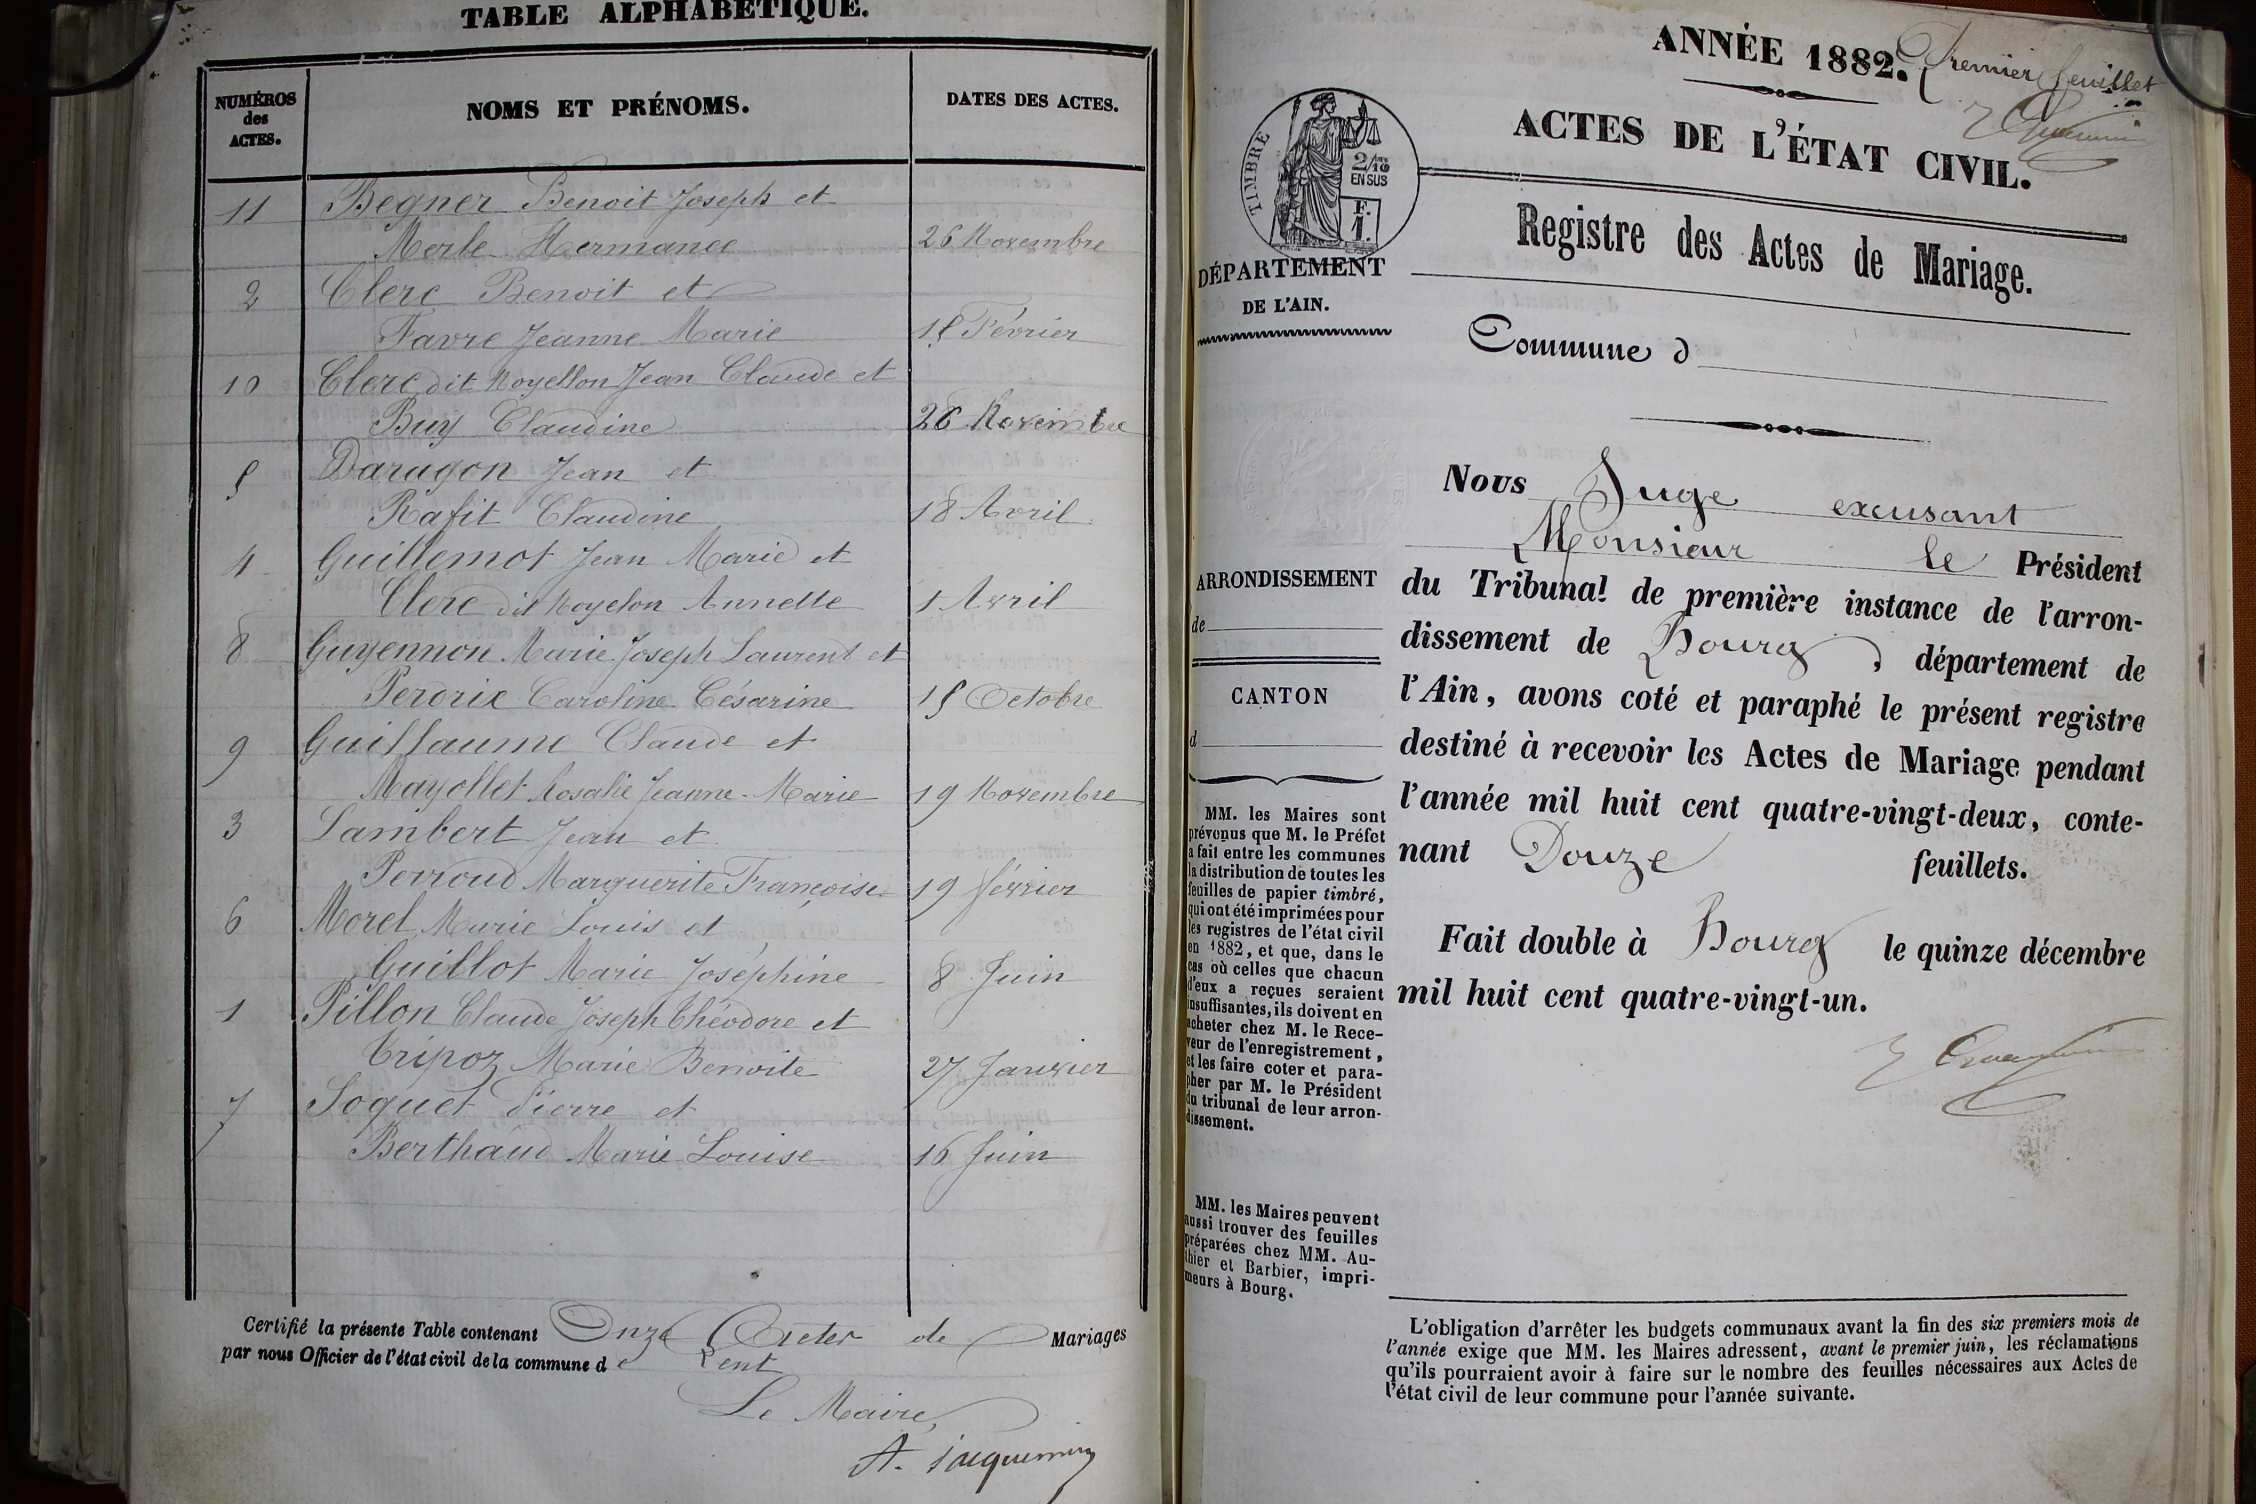 TABLE ALPHABÉTIQUE.
NUMÉROS
des
ACTES.
NOMS ET PRÉNOMS.
DATES DES ACTES.
11 Begner Benoit Joseph et
Morle Hermance 26 Novembre
2 Clerc Benoit et
Favre Jeanne Marie 15 Février
10 Clerc dit Noyellon Jean Claude et
Buy Claudine 26 Novembre
5 Daragon Jean et
Rafit Claudine 18 Avril
4 Guillemot Jean Marie et
Clerc dit Noyelon Annette 1 Avril
8 Guyennon Marie Joseph Laurent et
Perdrix Caroline Césarine 15 Octobre
9 Guillaume Claude et
Mayollet Rosalie Jeanne-Marie 19 Novembre
3 Lambert Jean et
Perroud Marguerite Françoise 19 février
6 Morel Marie Louis et
Guillot Marie Joséphine 8 Juin
1 Pillon Claude Joseph Théodore et
Tripoz Marie Benoite 27 Janvier
7 Soquet Pierre et
Berthaud Marie Louise 16 Juin
Certifié la présente Table contenant Onze Actes de Mariages
par nous Officier de l'état civil de la commune de Lent
Le Maire,
A. Jacquemin
ANNÉE 1882.
Premier feuillet
ACTES DE L'ÉTAT CIVIL.
TIMBRE
2/10
EN SUS
F.
1.
Registre des Actes de Mariage.
DÉPARTEMENT
DE L'AIN.
Commune d
Nous Juge excusant
Monsieur le Président
du Tribunal de première instance de l'arron-
dissement de Bourg, département de
l'Ain, avons coté et paraphé le présent registre
destiné à recevoir les Actes de Mariage pendant
l'année mil huit cent quatre-vingt-deux, conte-
nant Douze feuillets.
Fait double à Bourg le quinze décembre
mil huit cent quatre-vingt-un.
ARRONDISSEMENT
de
CANTON
d
MM. les Maires sont
prévenus que M. le Préfet
a fait entre les communes
la distribution de toutes les
feuilles de papier timbré,
qui ont été imprimées pour
les registres de l'état civil
en 1882, et que, dans le
cas où celles que chacun
d'eux a reçues seraient
insuffisantes, ils doivent en
acheter chez M. le Rece-
veur de l'enregistrement,
et les faire coter et para-
pher par M. le Président
du tribunal de leur arron-
dissement.
MM. les Maires peuvent
aussi trouver des feuilles
préparées chez MM. Au-
thier et Barbier, impri-
meurs à Bourg.
L'obligation d'arrêter les budgets communaux avant la fin des six premiers mois de
l'année exige que MM. les Maires adressent, avant le premier juin, les réclamations
qu'ils pourraient avoir à faire sur le nombre des feuilles nécessaires aux Actes de
l'état civil de leur commune pour l'année suivante.